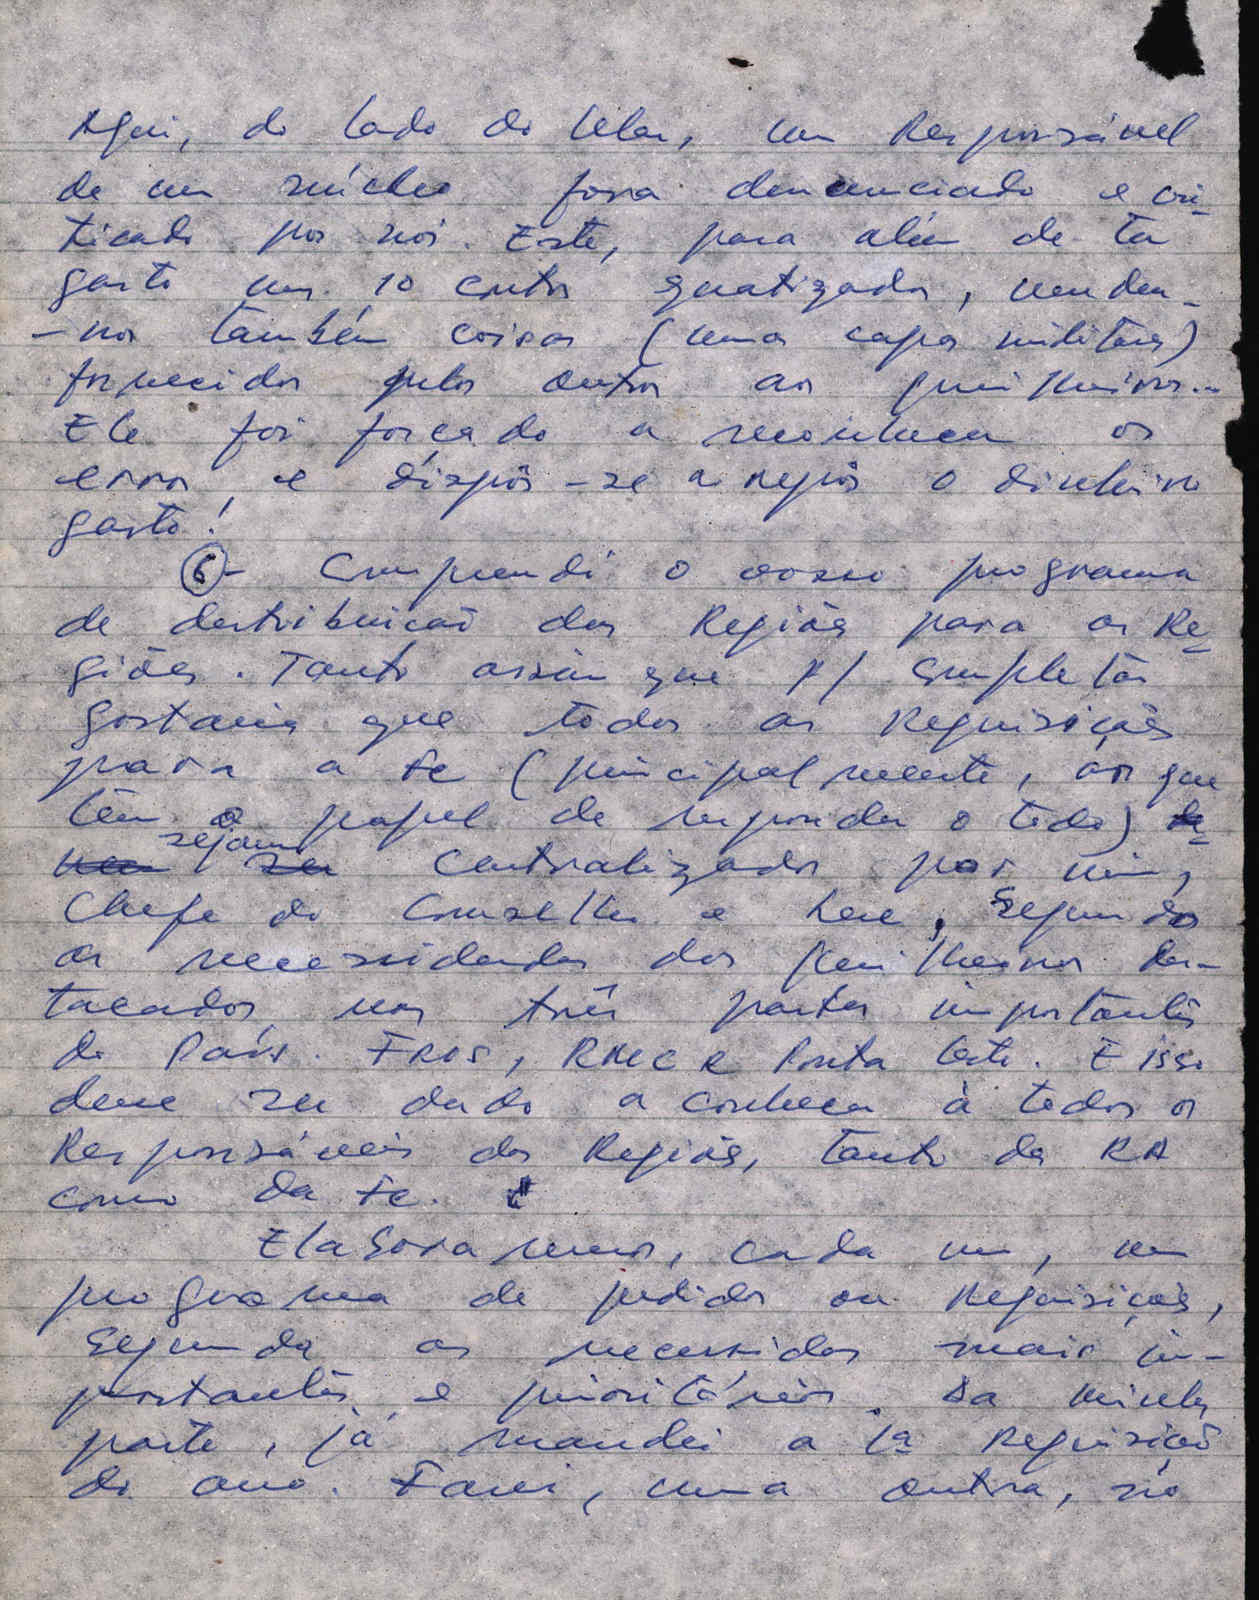 Aqui, do lado do Uelar, um Responsável
de um núcleo fora denunciado e cri-
ticado por nós. Este, para além de ter
gasto uns 10 contos quotizados, vendeu-
-nos também coisas (umas capas militares)
fornecidos pelos outros aos guilheiros..
Ele foi forçado a reconhecer os
erros, e dispôs-se a repôr o dinheiro
gasto!
6- Compreendi o vosso programa
de destribuição das Regiões para as Re-
giões. Tanto assim que p/ completar
gostaria que todas as Requisições
para a FC (principalmente, ás que
têm o papel de responder o todo)
sejam centralizadas por mim,
Chefe do Conselho e Lene, segundo
as necessidades dos guilheiros des-
tacados nas três partes importantes
do País. FNOS, RNEC e Ponta Leste. E isso
deve ser dado a conhecer à todos os
Responsáveis das Regiões, tanto da RA
como da FC.
Elaboraremos, cada um, um
programa de pedidos ou Requisições,
segundo as necessidades mais im-
portantes e prioritários. Da minha
parte, já mandei a 1ª Requisição
do ano. Farei, uma outra, só